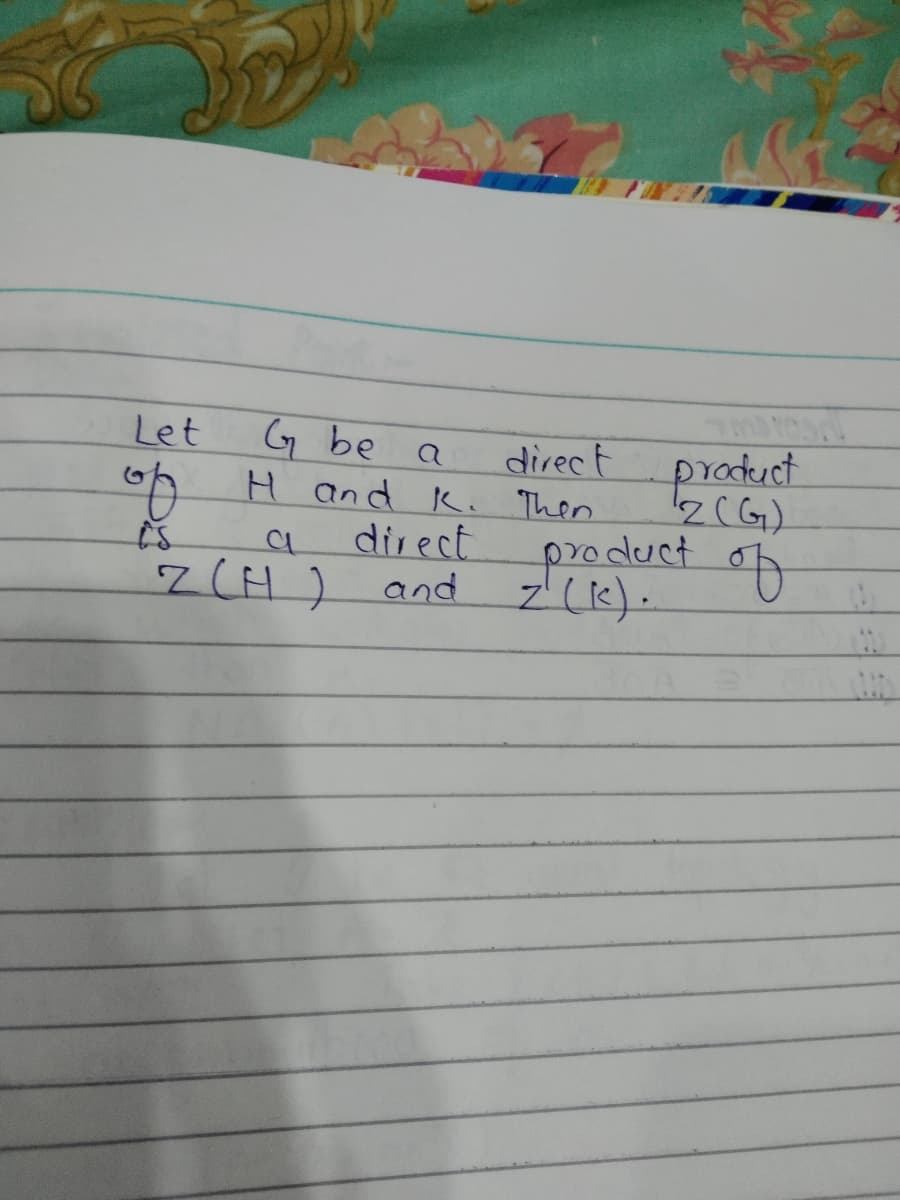 Let G be a direct product
of H and K. Then Z(G)
is a direct product of
Z(H) and Z(K).